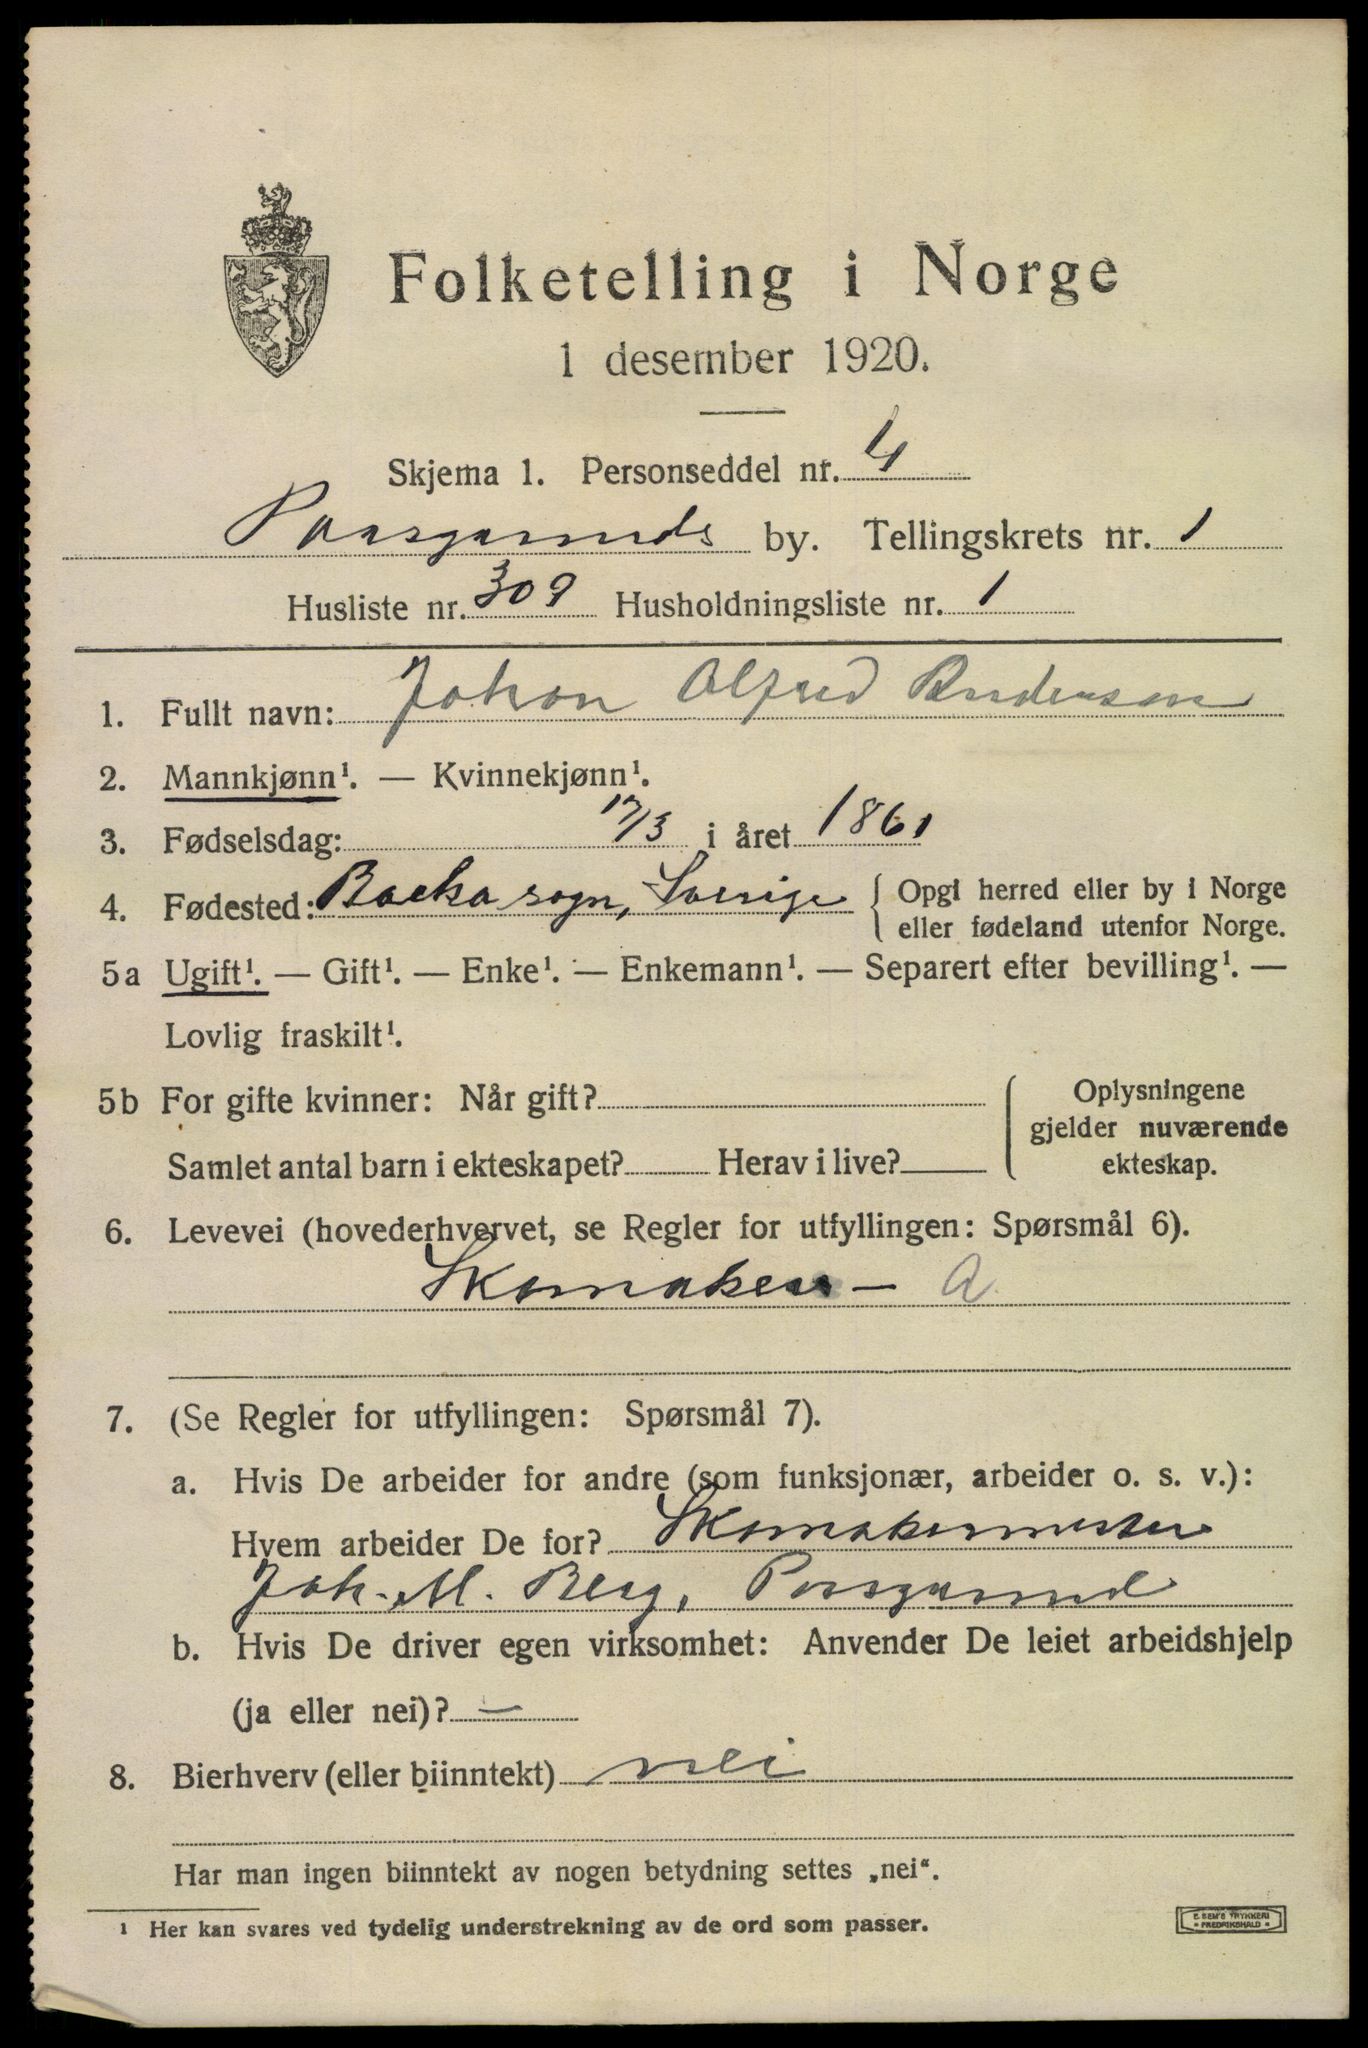 Folketelling i Norge
1 desember 1920.
Skjema 1. Personseddel nr. 4
Porsgrunds by. Tellingskrets nr. 1
Husliste nr. 309 Husholdningsliste nr. 1
1. Fullt navn: Johan Alfred Anderson
2. Mannkjønn¹. — Kvinnekjønn¹.
3. Fødselsdag: 17/3 i året 1861
4. Fødested: Backa sogn, Sverige { Opgi herred eller by i Norge
eller fødeland utenfor Norge.
5a Ugift¹. — Gift¹. — Enke¹. — Enkemann¹. — Separert efter bevilling¹. —
Lovlig fraskilt¹.
5b For gifte kvinner: Når gift? Oplysningene
gjelder nuværende
Samlet antal barn i ekteskapet? Herav i live? ekteskap.
6. Levevei (hovederhvervet, se Regler for utfyllingen: Spørsmål 6).
Skomaker — A
7. (Se Regler for utfyllingen: Spørsmål 7).
a. Hvis De arbeider for andre (som funksjonær, arbeider o. s. v.):
Hvem arbeider De for? Skomakermester
Joh. M. Berg, Porsgrund
b. Hvis De driver egen virksomhet: Anvender De leiet arbeidshjelp
(ja eller nei)? —
8. Bierhverv (eller biinntekt) nei
Har man ingen biinntekt av nogen betydning settes „nei“.
¹ Her kan svares ved tydelig understrekning av de ord som passer.
E. SEM'S TRYKKERI
FREDRIKSHALD